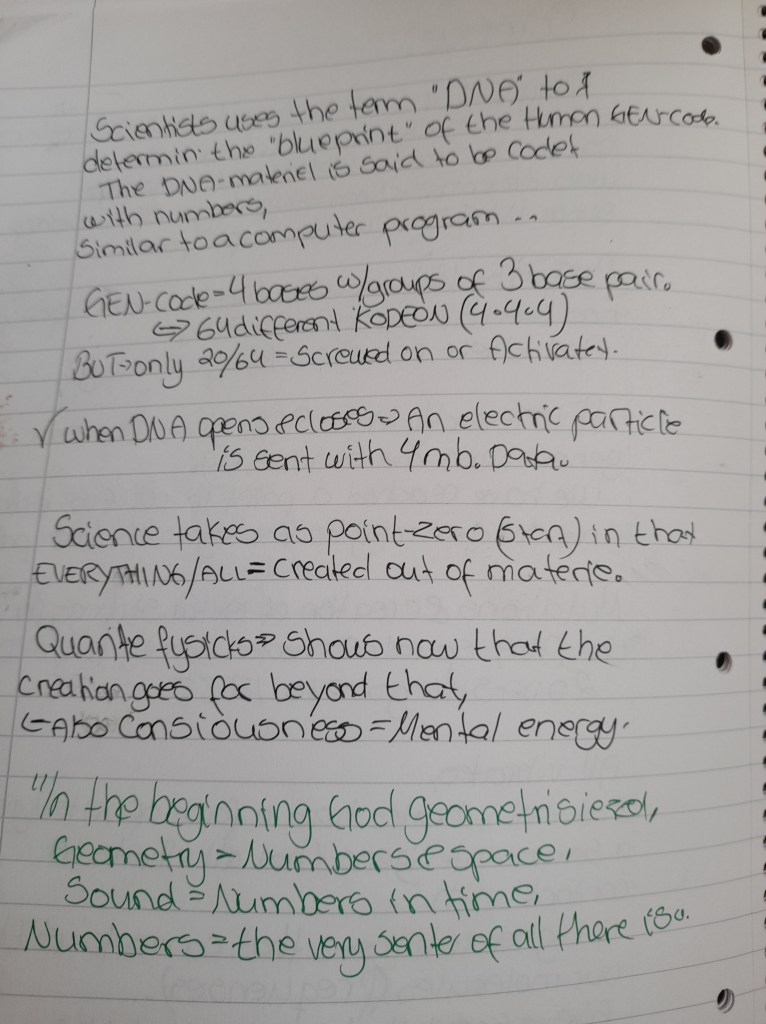 Scientists uses the term "DNA" to
determin the "blueprint" of the Human GEN-code.
The DNA-materiel is said to be codet
with numbers,
Similar to a computer program ..
GEN-code=4 bases w/groups of 3 base pair.
↔ 64 different KODEON (4•4•4)
BUT→only 20/64 = Screwed on or Activatet.
√ when DNA opens & closes⇒ An electric particle
is sent with 4mb. Data.
Science takes as point-zero (start) in that
EVERYTHING/ALL= Created out of materie.
Quante fysicks⇒ Shows now that the
creation goes far beyond that,
↳Also Consiousness = Mental energy.
"In the beginning God geometrisiezed,
Geometry = Numbers & space,
Sound = Numbers in time,
Numbers = the very senter of all there is".